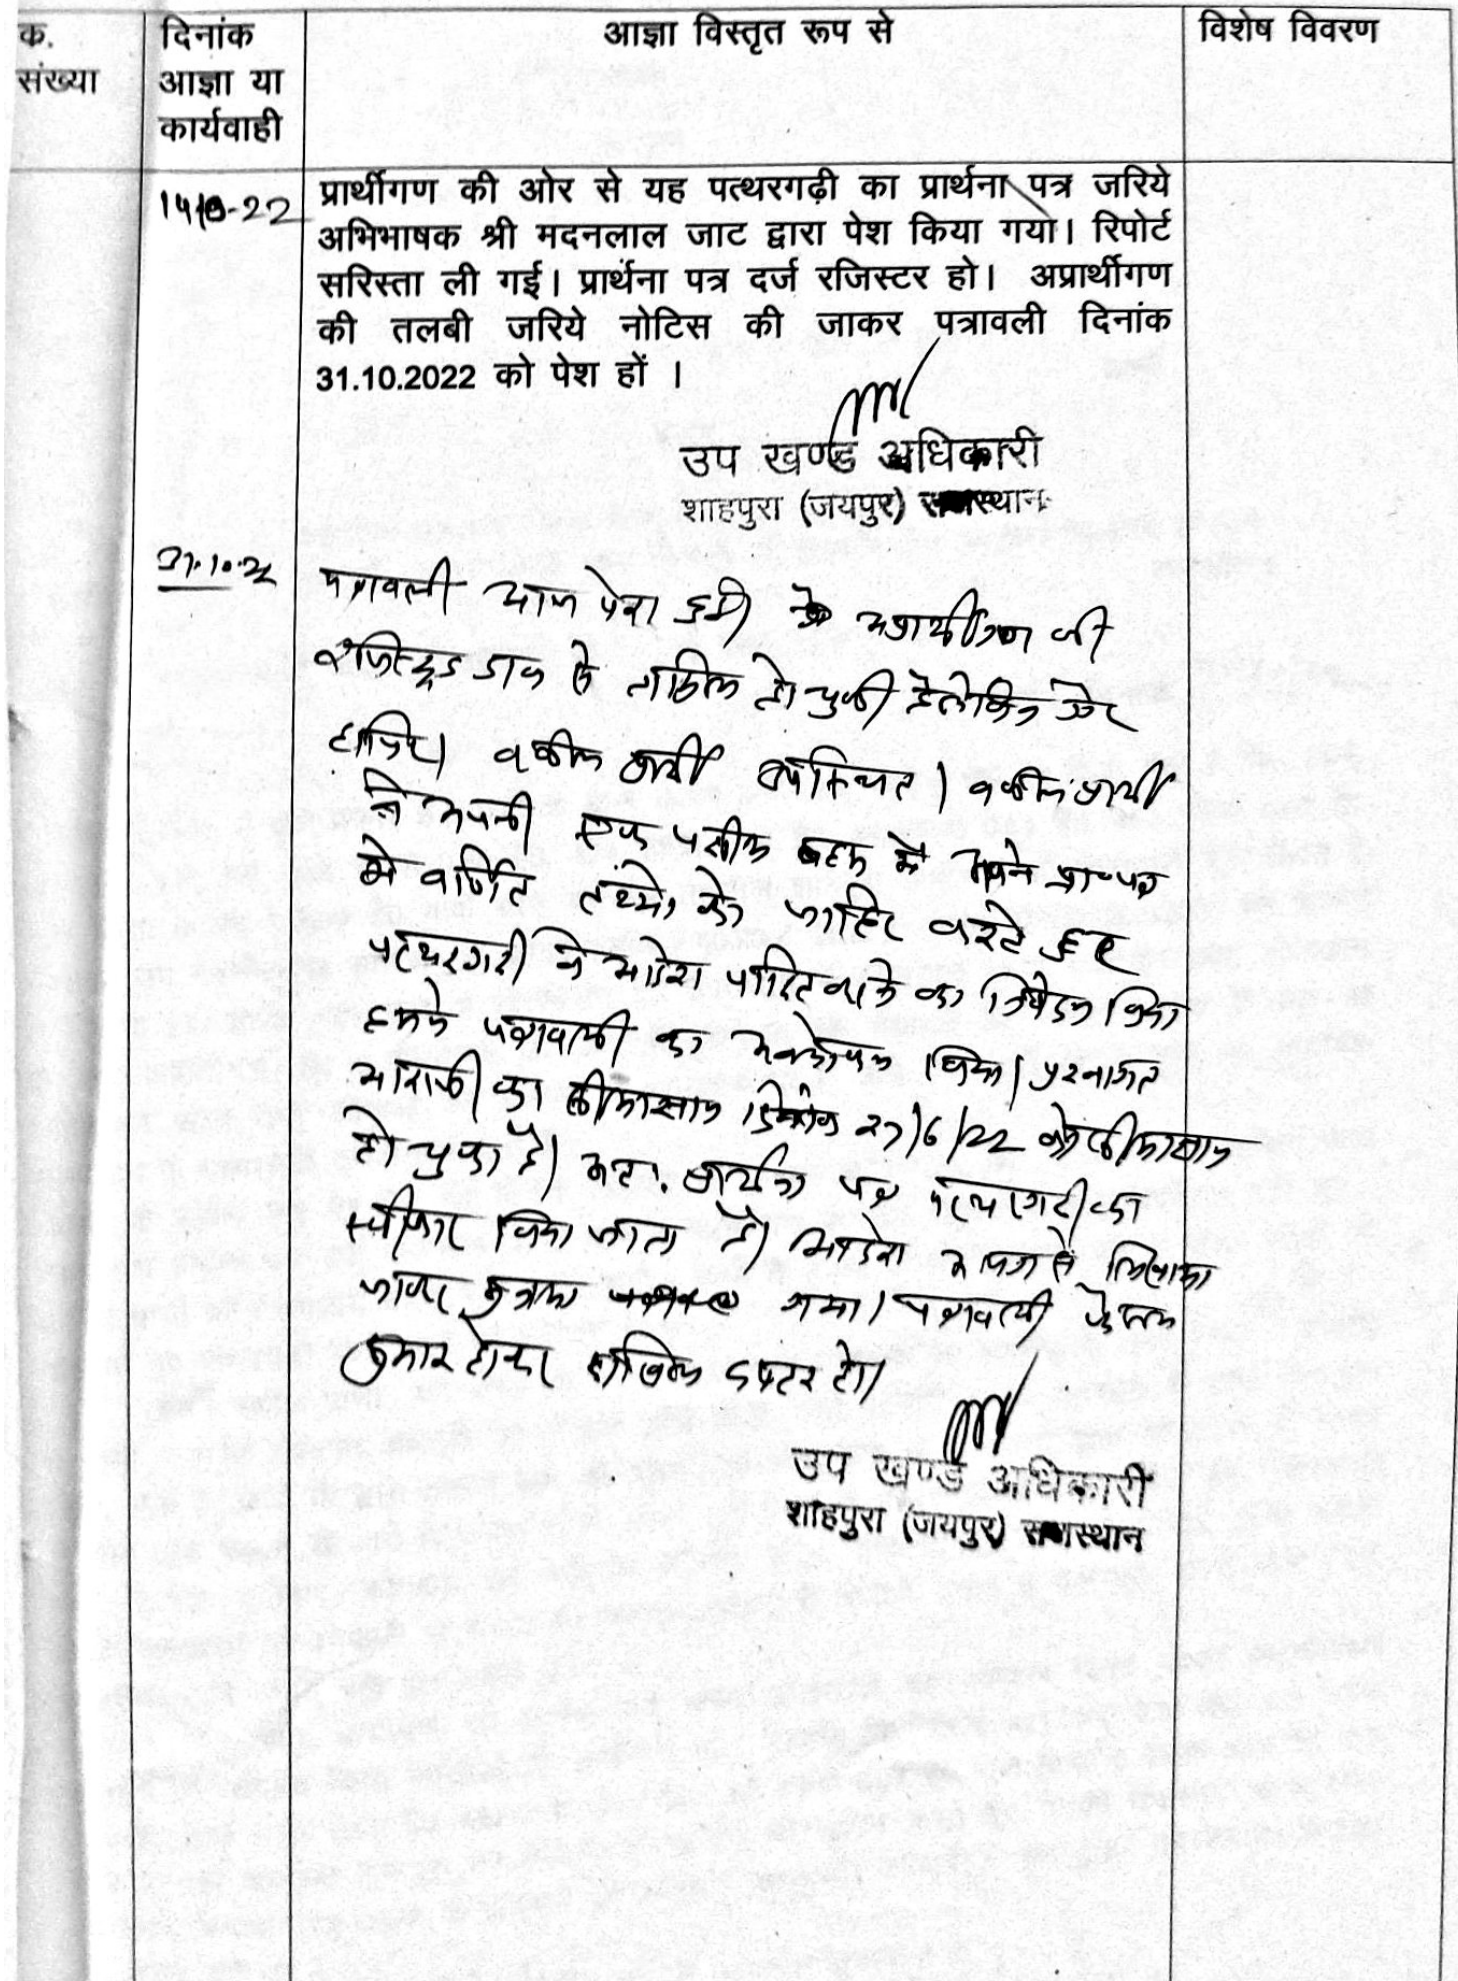 क.
संख्या
दिनांक
आज्ञा या
कार्यवाही
आज्ञा विस्तृत रूप से
विशेष विवरण
प्रार्थीगण की ओर से यह पत्थरगढ़ी का प्रार्थना पत्र जरिये
अभिभाषक श्री मदनलाल जाट द्वारा पेश किया गया। रिपोर्ट
सरिस्ता ली गई। प्रार्थना पत्र दर्ज रजिस्टर हो। अप्रार्थीगण
की तलबी जरिये नोटिस की जाकर पत्रावली दिनांक
31.10.2022 को पेश हों ।
उप खण्ड अधिकारी
शाहपुरा (जयपुर) राजस्थान
31.10.22
पत्रावली आज पेश हुयी अप्रार्थीगण की
रजिस्टर्ड डाक से तामिल हो चुकी है लेकिन गैर
हाजिर। वकील प्रार्थी उपस्थित। वकील प्रार्थी
ने अपनी एक पक्षीय बहस में अपने प्रा० पत्र
में वर्णित तथ्यों को जाहिर करते हुए
पत्थरगढी के आदेश पारित करने का निवेदन किया
हमने पत्रावली का अवलोकन किया। प्रश्नगत
आराजी का सीमाज्ञान दिनांक 27/6/22 को सीमाज्ञान
हो चुका है। अतः प्रार्थना पत्र पत्थरगढी का
स्वीकार किया जाता है। आदेश पृथक से लिखाया
जाकर सुनाया गया। पत्रावली फैसल
शुमार होकर दाखिल दफ्तर हो।
उप खण्ड अधिकारी
शाहपुरा (जयपुर) राजस्थान